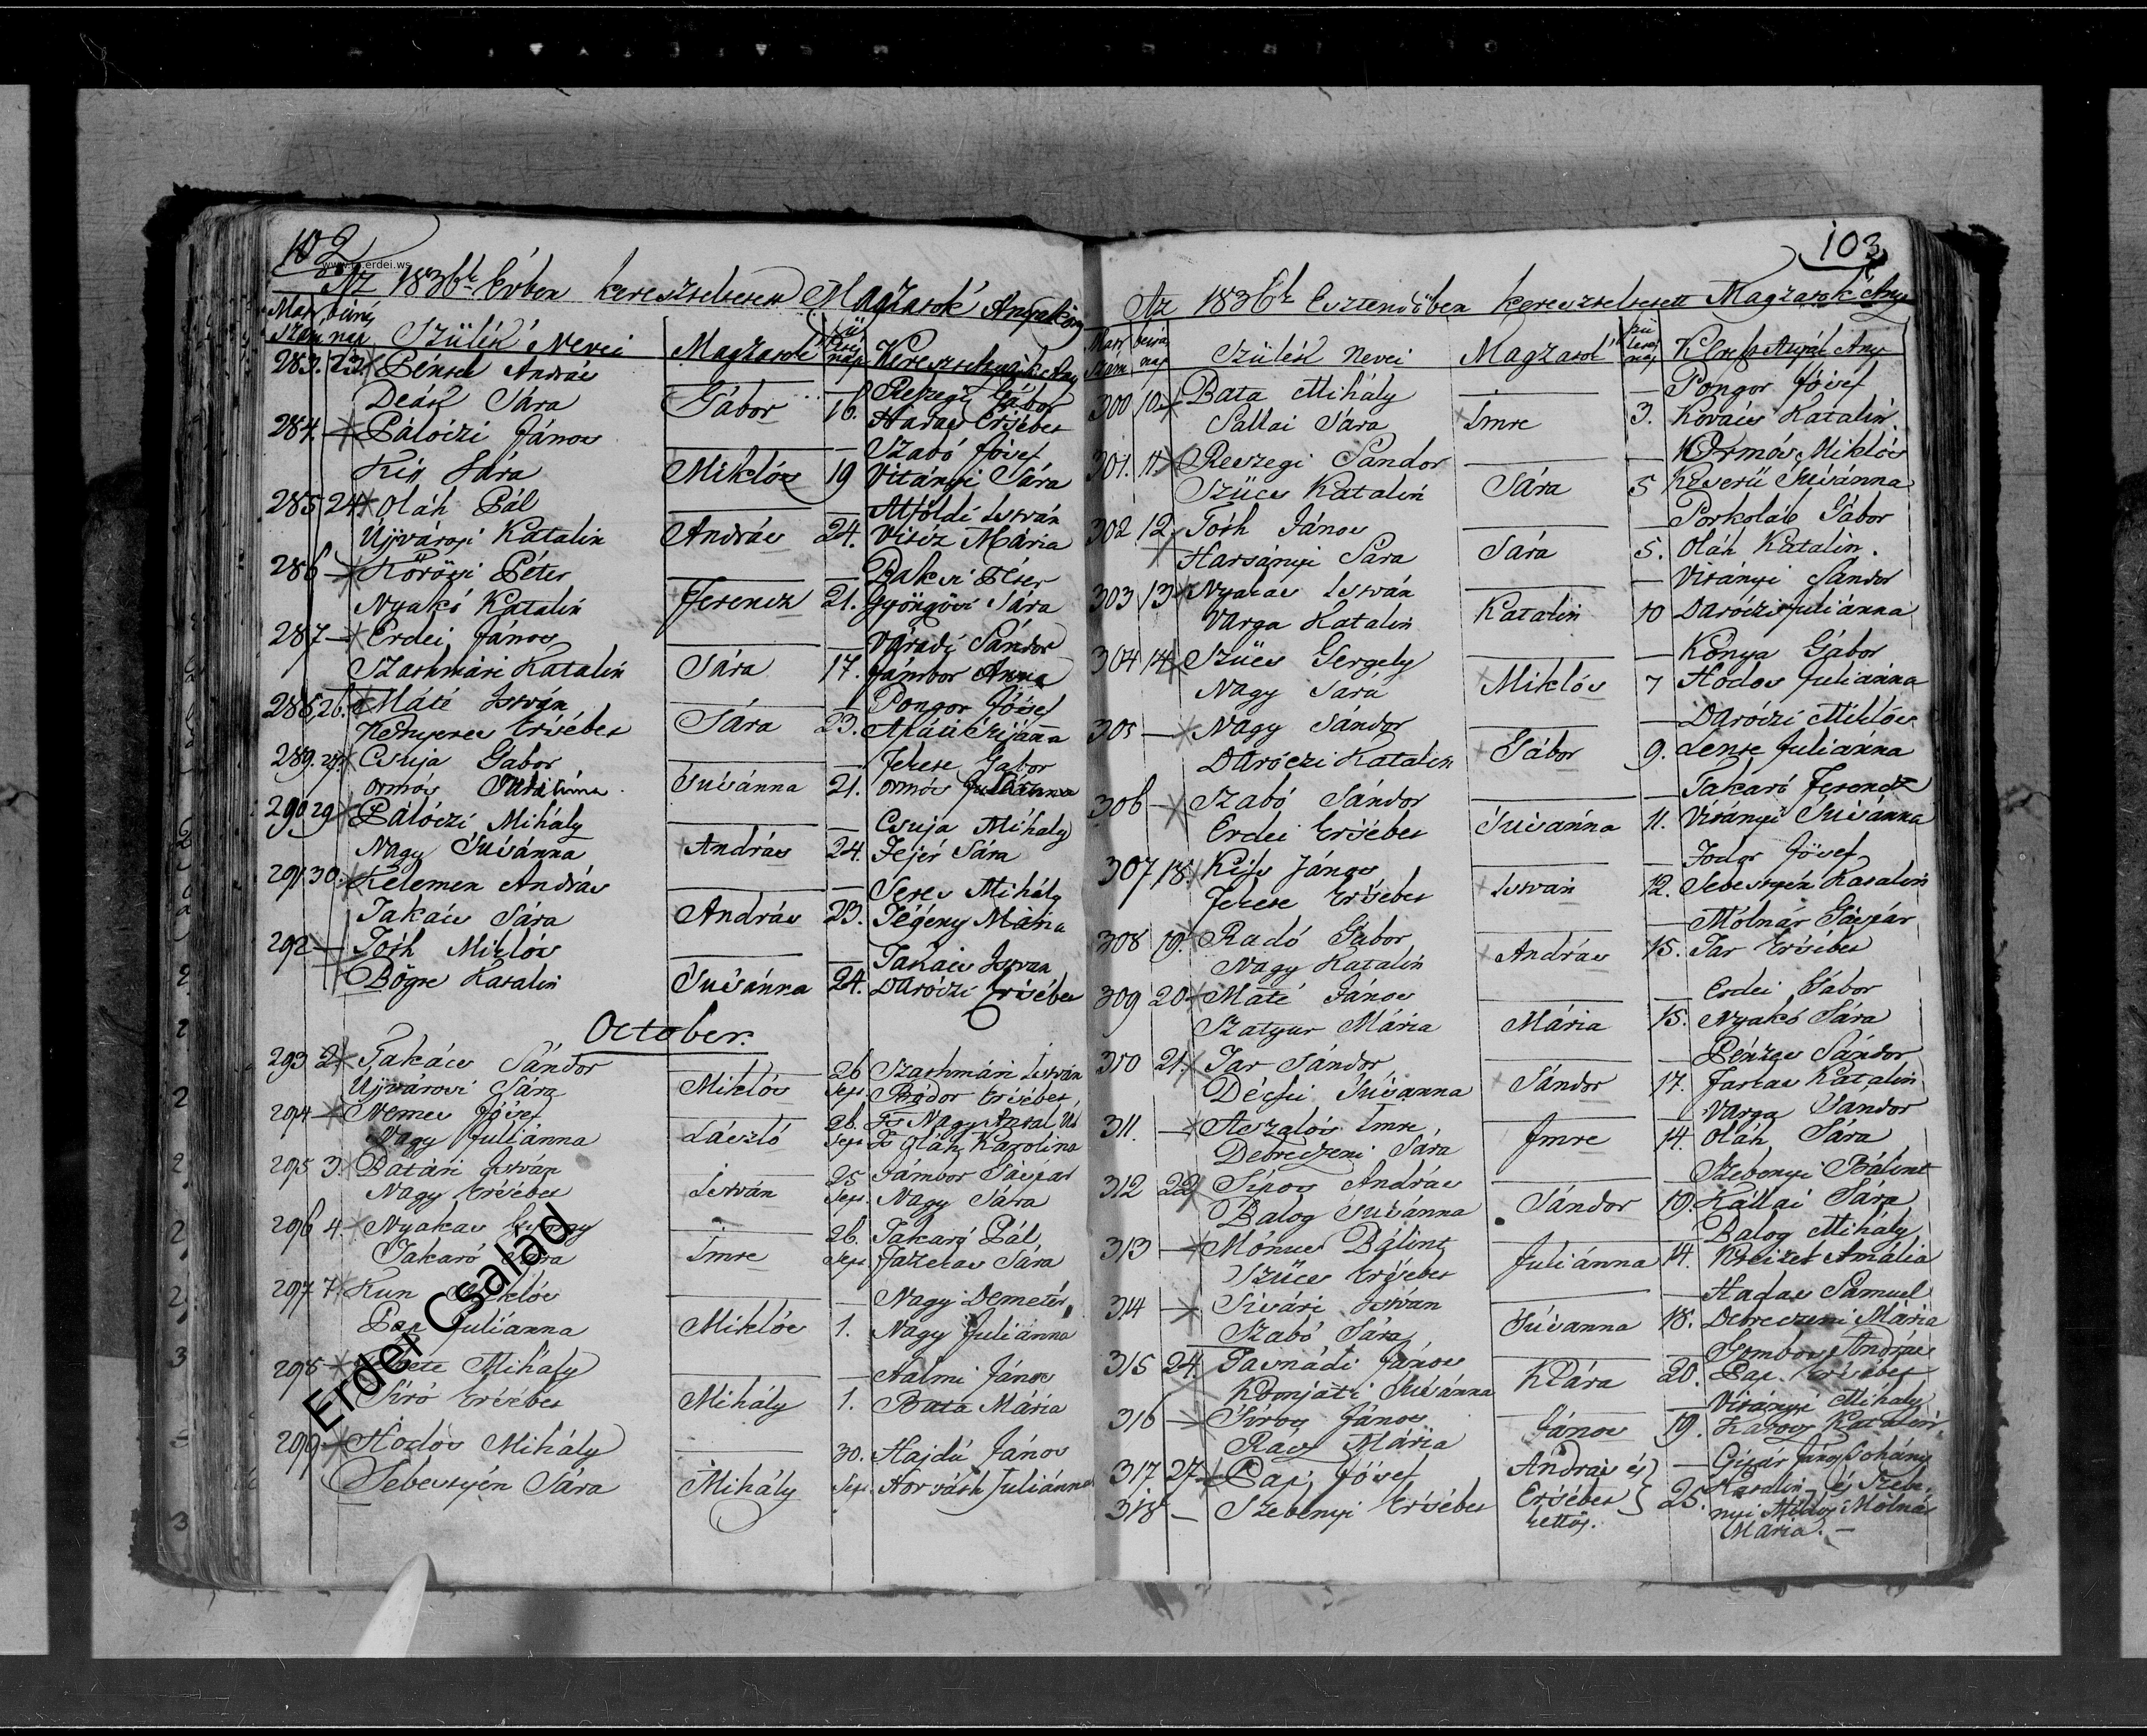 102
www.erdei.ws
Az 1836k Évben kereszteltetett Magzatok Anyakönyve
Szülék Nevei Magzatok
283. 23. Pénzes András
Deák Sára Gábor 16. Reszegi Gábor
Haraó Ersébet
284. — Pálóczi János
Kis Sára Miklós 19 Szabó Jósef
Vitányi Sára
285 24 Oláh Pál
Ujvárosi Katalin András 24. Alföldi István
Mária
286 — Kőrösi Péter
Nyakó Katalin Ferencz 21. Baksi Péter
Gyöngösi Sára
287 — Erdei János
Szathmári Katalin Sára 17. Váradi Sándor
Jámbor Anna
288 26. Máté István
Kenyeres Ersébet Sára 23. Pongor Jósef
289. 27. Csuja Gábor
Ormós Susánna 21. Fekese Gábor
Ormós Juliánna
290 29 Pálóczi Mihály
Nagy Susánna András 24. Csuja Mihály
Fejér Sára
291 30. Kelemen András
Takács Sára András 23. Seres Mihály
Tégény Mária
292 — Tóth Miklós
Bögre Katalin Susánna 24. Takács István
Daróczi Ersébet
October.
293 2. Takács Sándor
Ujvárosi Sára Miklós 26 Sept Szathmári István
Bódor Ersébet
294 — Nemes Jósef
Nagy Juliánna László 26. Sept Ts Nagy Antal Ur
Ts Oláh Karolina
295 3. Batári István
Nagy Ersébet István 25 Sept. Jámbor Gáspár
Nagy Sára
296 4. Nyakas György
Takaró Sára Imre 26. Sept Takaró Pál
Fazekas Sára
297 7. Kun Miklós
Pap Juliánna Miklós 1. Nagy Demeter
Nagy Juliánna
298 — Mihály
Siró Ersébet Mihály 1. Halmi János
Bata Mária
299 — Hodos Mihály
Sebestyén Sára Mihály 30. Sept. Hajdú János
Horváth Juliánna
Erdei Család
103
Az 1836k Esztendőben kereszteltetett Magzatok Any
Szülék Nevei Magzatok
300 10. Bata Mihály
Kallai Sára Imre 3. Pongor Jósef
Kovács Katalin
301. 11 Reszegi Sándor
Szücs Katalin Sára 5 Ormós Miklós
Keserü Susánna
302 12 Tóth János
Harsányi Sára Sára 5. Porkoláb Gábor
Oláh Katalin.
303 13 Nyakas István
Varga Katalin Katalin 10 Virányi Sándor
Daróczi Juliánna
304 14 Szücs Gergely
Nagy Sára Miklós 7 Kónya Gábor
Hodos Juliánna
305 — Nagy Sándor
Daróczi Katalin Gábor 9. Daróczi Miklós
Lense Juliánna
306 — Szabó Sándor
Erdei Ersébet Susánna 11. Takaró Ferencz
Virányi Susánna
307 18. Kiss János
Fekese Ersébet István 12. Fodor Jósef
Sebestyén Katalin
308 19. Radó Gábor
Nagy Katalin András 15. Mólnár Gáspár
Tar Ersébet
309 20 Máté János
Szatyur Mária Mária 15. Erdei Gábor
Nyakó Sára
310 21. Tar Sándor
Décsei Susánna Sándor 17. Pénzes Sándor
Farkas Katalin
311. — Aszalós Imre
Debreczeni Sára Imre 14. Varga Sándor
Oláh Sára
312 22 Sipos András
Balog Susánna Sándor 19. Szebenyi Bálint
Kállai Sára
313 — Mónus Bálint
Szücs Ersébet Juliánna 14. Balog Mihály
Amália
314 — Sivári István
Szabó Sára Susánna 18. Hadas Samuel
Debreczeni Mária
315 24. Tasnádi János
Komjáti Susánna Klára 20. Gombos András
Pap Ersébet
316 — Siros János
Rács Mária János 19. Virányi Mihály
Katalin
317 27. Pap Jósef András és
318 — Szebenyi Ersébet Ersébet 25.
kettős.
Katalin és Szebe-
nyi Miklós Mólnár
Mária. —